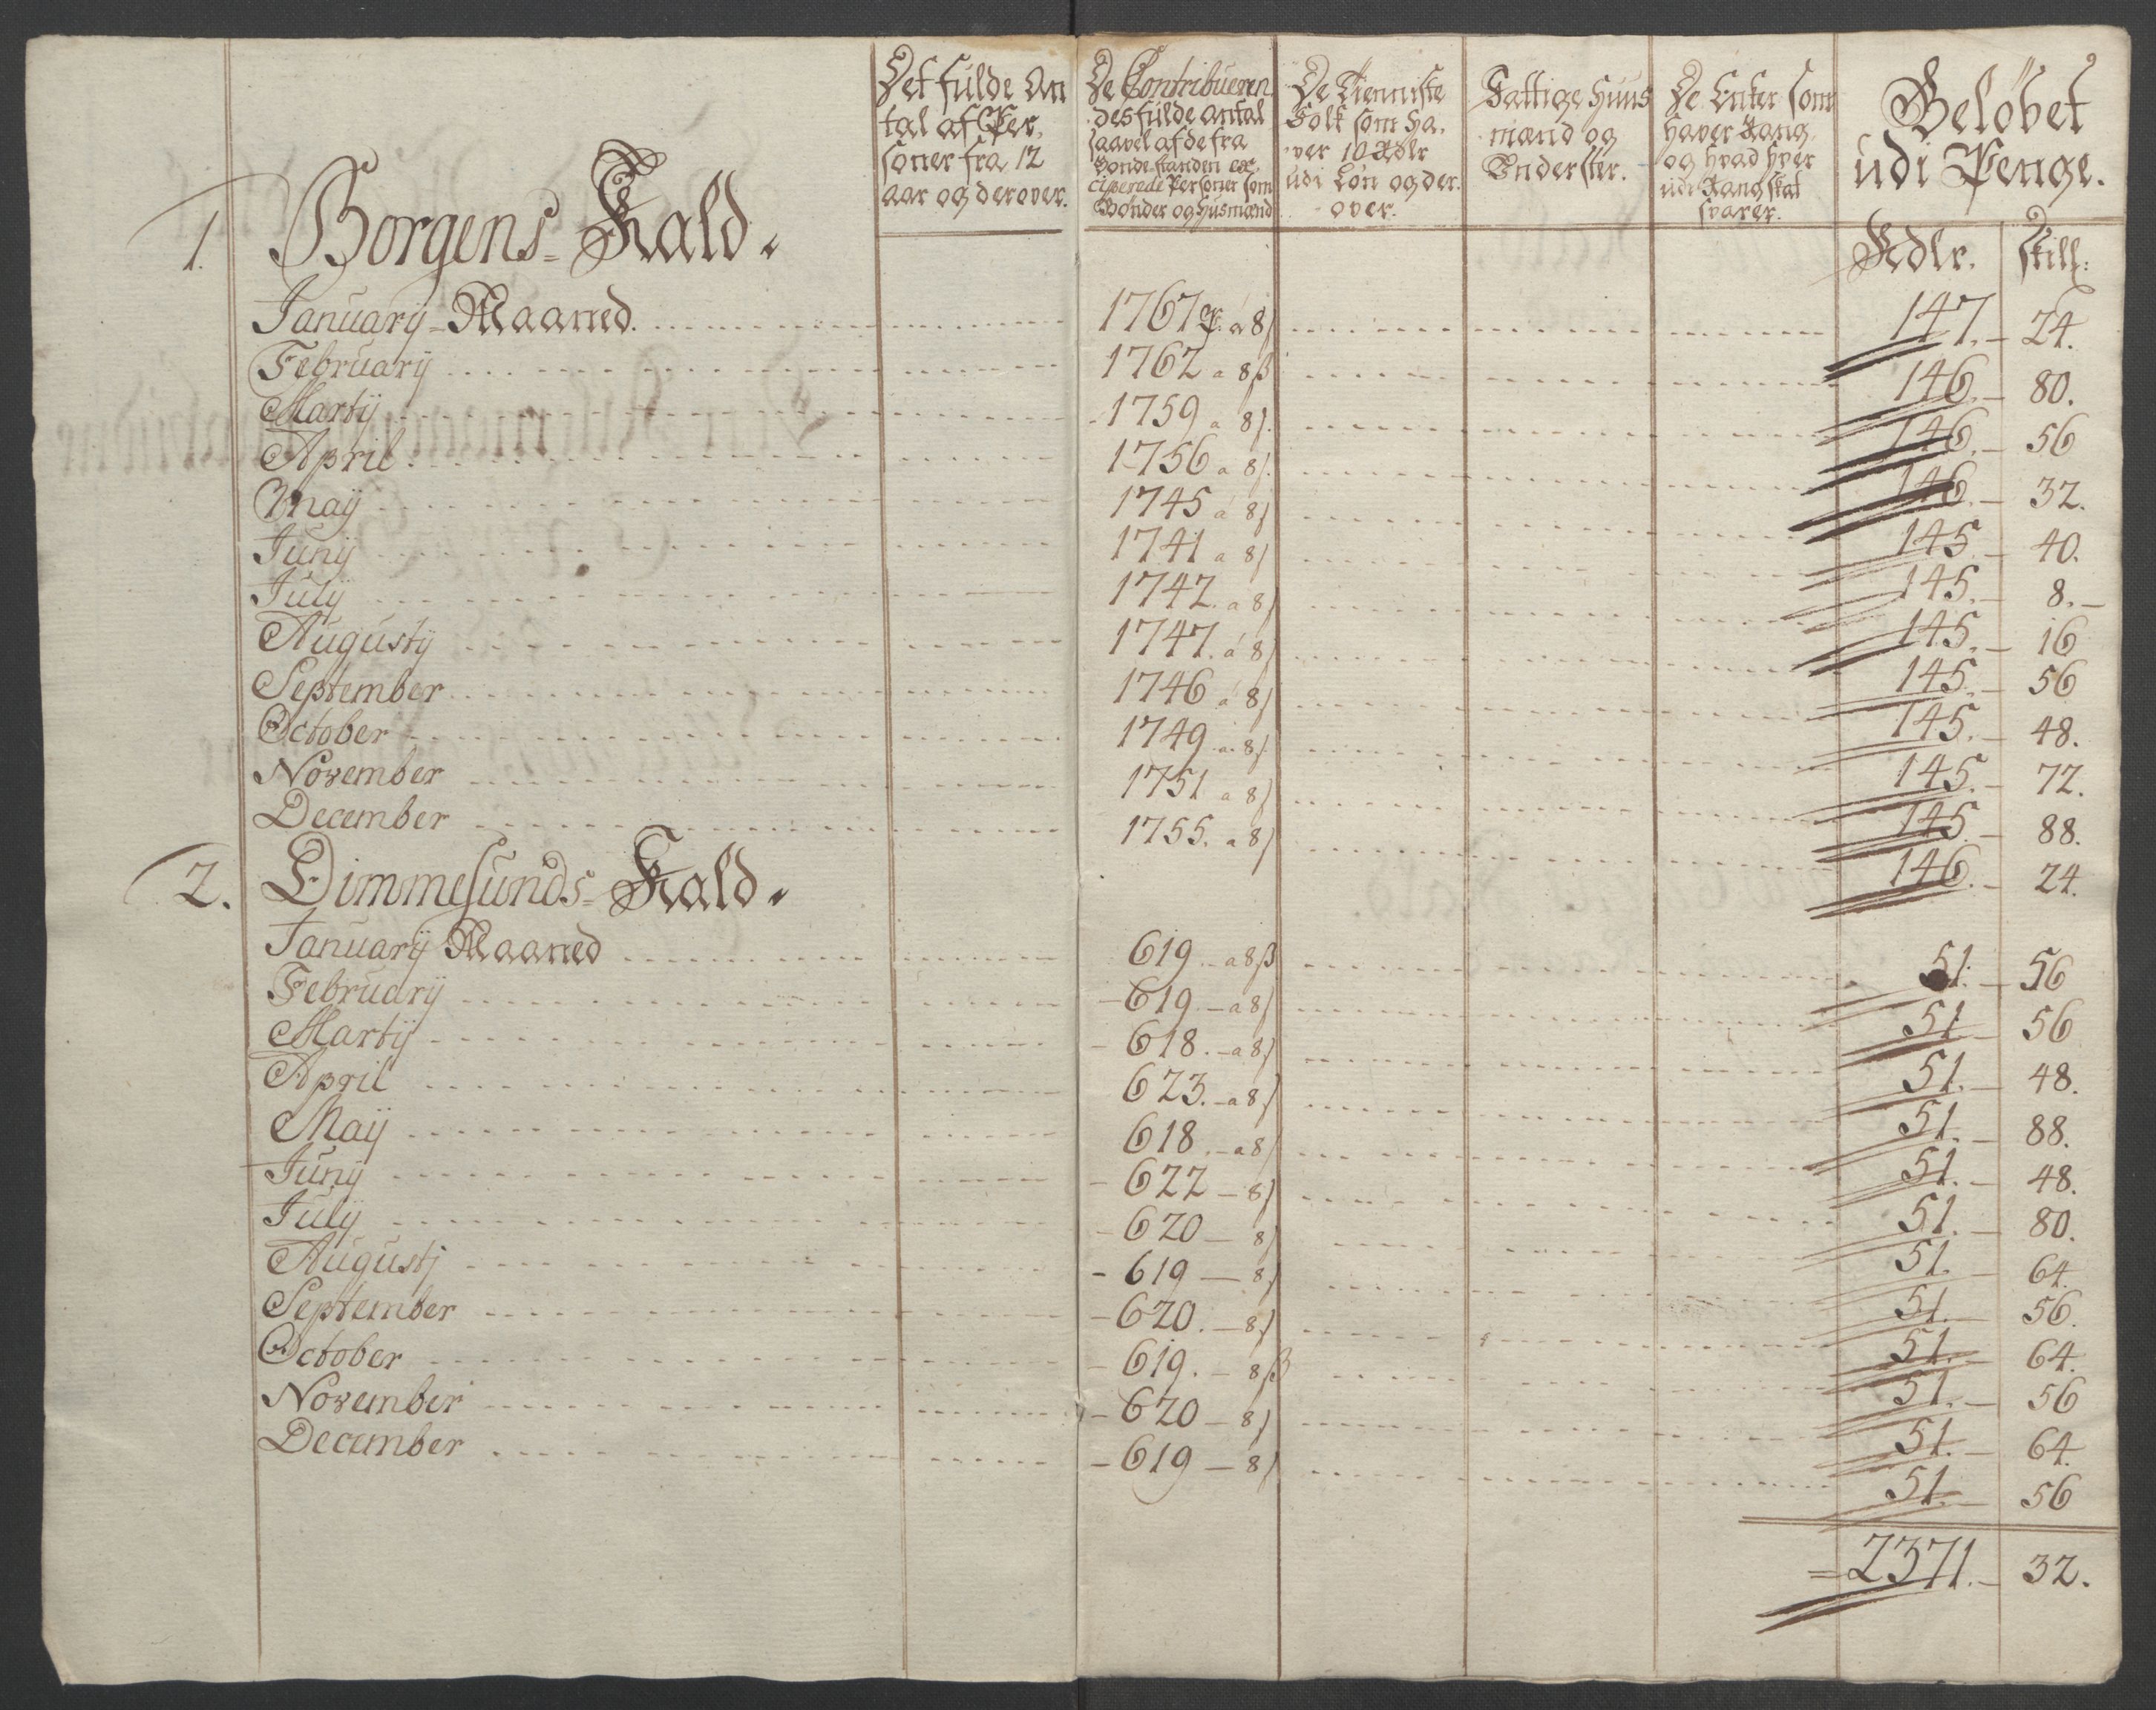 Det fulde An
tal af Per,
soner fra 12
aar og derover.
De Contribueren
des fulde antal
saavel af de fra
Bonde standen ex,
ciperede Personer som
Bønder og Husmænd
De Tienniste
Folk som ha,
ver 10 Rdlr
udi Løn og der,
over.
Fattige Huus
mænd og
Inderster.
De Enker som
haver Rang,
og hvad hver
udi Rang skat
svarer.
Beløbet
udi Penge.
Rdlr. Skill:
1. Borgens Kald.
Januarij Maaned. 1767 P. a 8 s 147. 24.
Februarij 1762 a 8 ß 146. 80.
Martij 1759 a 8 s. 146. 56
April 1756 a 8 s. 146. 32.
Maij 1745 a 8 s 145 40.
Junij 1741 a 8 s 145. 8.
Julij 1742. a 8 s 145. 16
Augustij 1747. a 8 s 145. 56
September 1746 a 8 s 145. 48.
October 1749 a. 8 s 145. 72.
November 1751 a 8 s 145. 88.
December 1755. a 8 s 146. 24.
2. Dimmelsunds Kald.
Januarij Maaned 619 a 8 ß 51. 56
Februarij 619 a 8 s 51. 56
Martij 618. a 8 s 51. 48.
April 623. a 8 s 51. 88.
Maij 618. a 8 s 51. 48.
Junij 622 8 s 51. 80.
Julij 620 8 s 51. 64.
Augustj 619 8 s 51. 56.
September 620. 8 s 51. 64.
October 619. 8 ß 51. 56
November 620 8 s 51. 64.
December 619 8 s 51. 56
2371. 32.